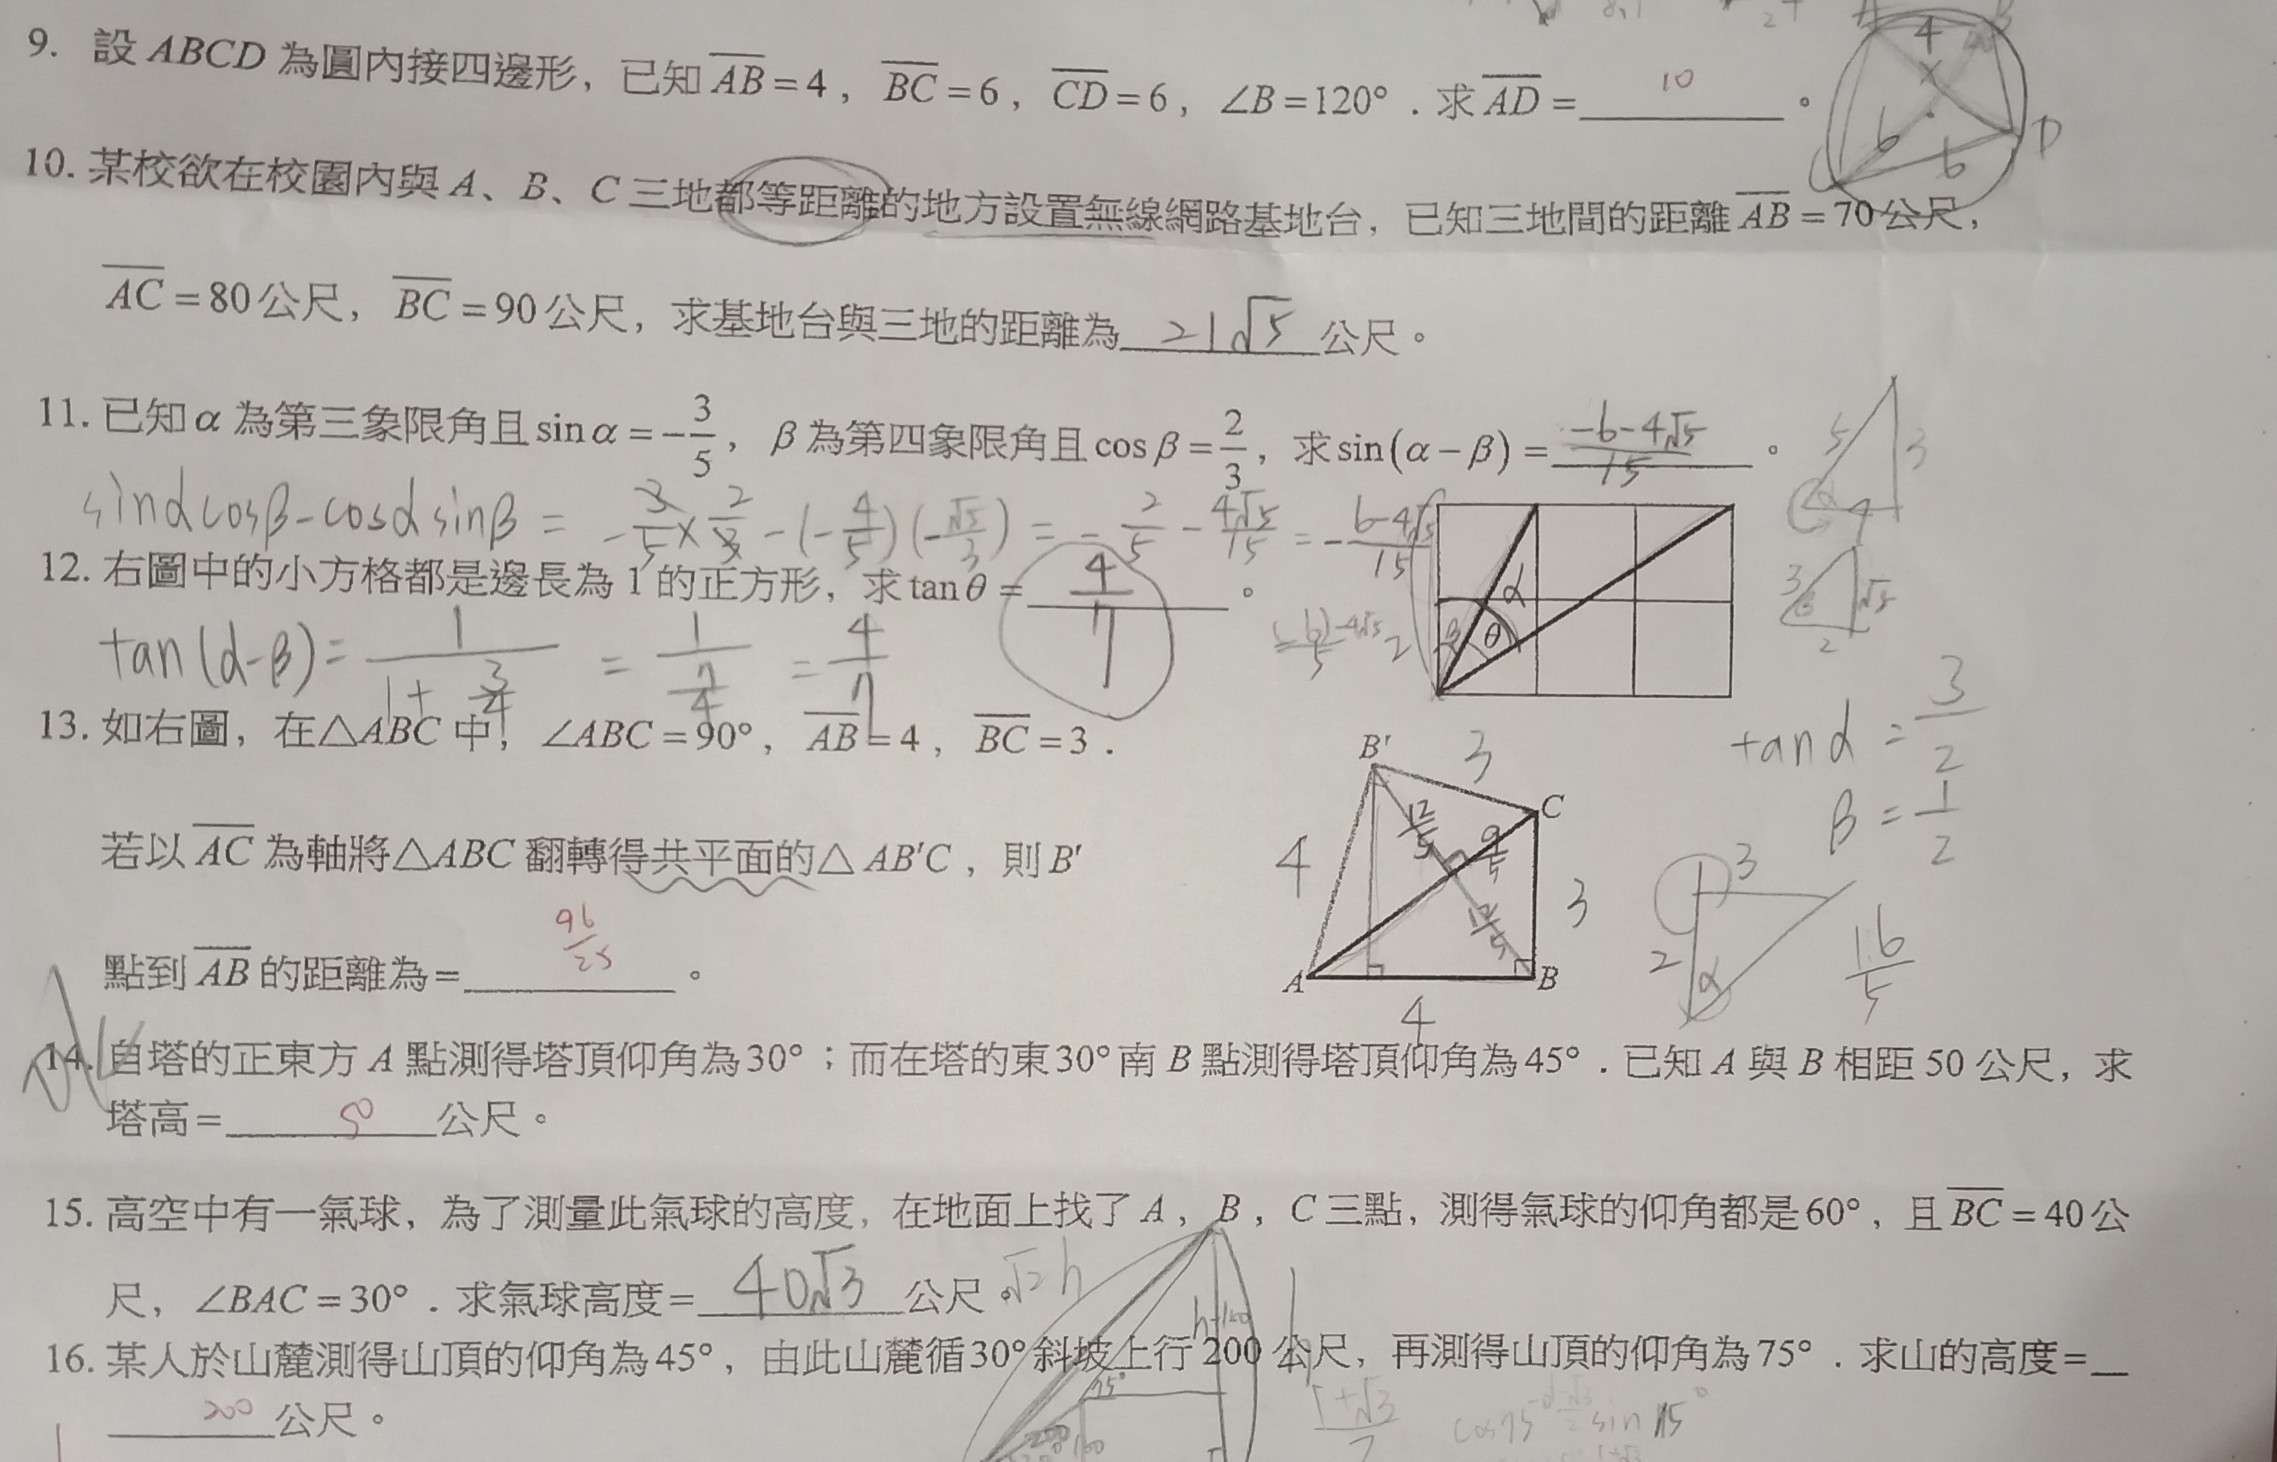 9. 設 ABCD 為圓內接四邊形，已知 AB = 4，BC = 6，CD = 6，∠B = 120°．求 AD = 10 。
4
6
6
D
10. 某校欲在校園內與 A、B、C 三地都等距離的地方設置無線網路基地台，已知三地間的距離 AB = 70 公尺，
AC = 80 公尺，BC = 90 公尺，求基地台與三地的距離為 21√5 公尺。
11. 已知 α 為第三象限角且 sin α = -3/5，β 為第四象限角且 cos β = 2/3，求 sin(α - β) = (-6-4√5)/15 。
5
3
4
sinαcosβ - cosαsinβ = -3/5 × 2/3 - (-4/5)(-√5/3) = -2/5 - 4√5/15 = -(6-4√5)/15
3
√5
2
12. 右圖中的小方格都是邊長為 1 的正方形，求 tan θ = 4/7 。
α
β
θ
2
tan(α-β) = 1/(1+3/4) = 1/(7/4) = 4/7
tanα = 3/2
β = 1/2
13. 如右圖，在△ABC 中，∠ABC = 90°，AB = 4，BC = 3．
若以 AC 為軸將△ABC 翻轉得共平面的△ AB'C，則 B'
點到 AB 的距離為 = 96/25 。
B'
3
C
12/5
9/5
4
12/5
3
A
B
4
3
2
α
16/5
14. 自塔的正東方 A 點測得塔頂仰角為 30°；而在塔的東 30° 南 B 點測得塔頂仰角為 45°．已知 A 與 B 相距 50 公尺，求
塔高 = 50 公尺。
15. 高空中有一氣球，為了測量此氣球的高度，在地面上找了 A，B，C 三點，測得氣球的仰角都是 60°，且 BC = 40 公
尺，∠BAC = 30°．求氣球高度 = 40√3 公尺。
√2 h
h
16. 某人於山麓測得山頂的仰角為 45°，由此山麓循 30° 斜坡上行 200 公尺，再測得山頂的仰角為 75°．求山的高度 =
200 公尺。
75°